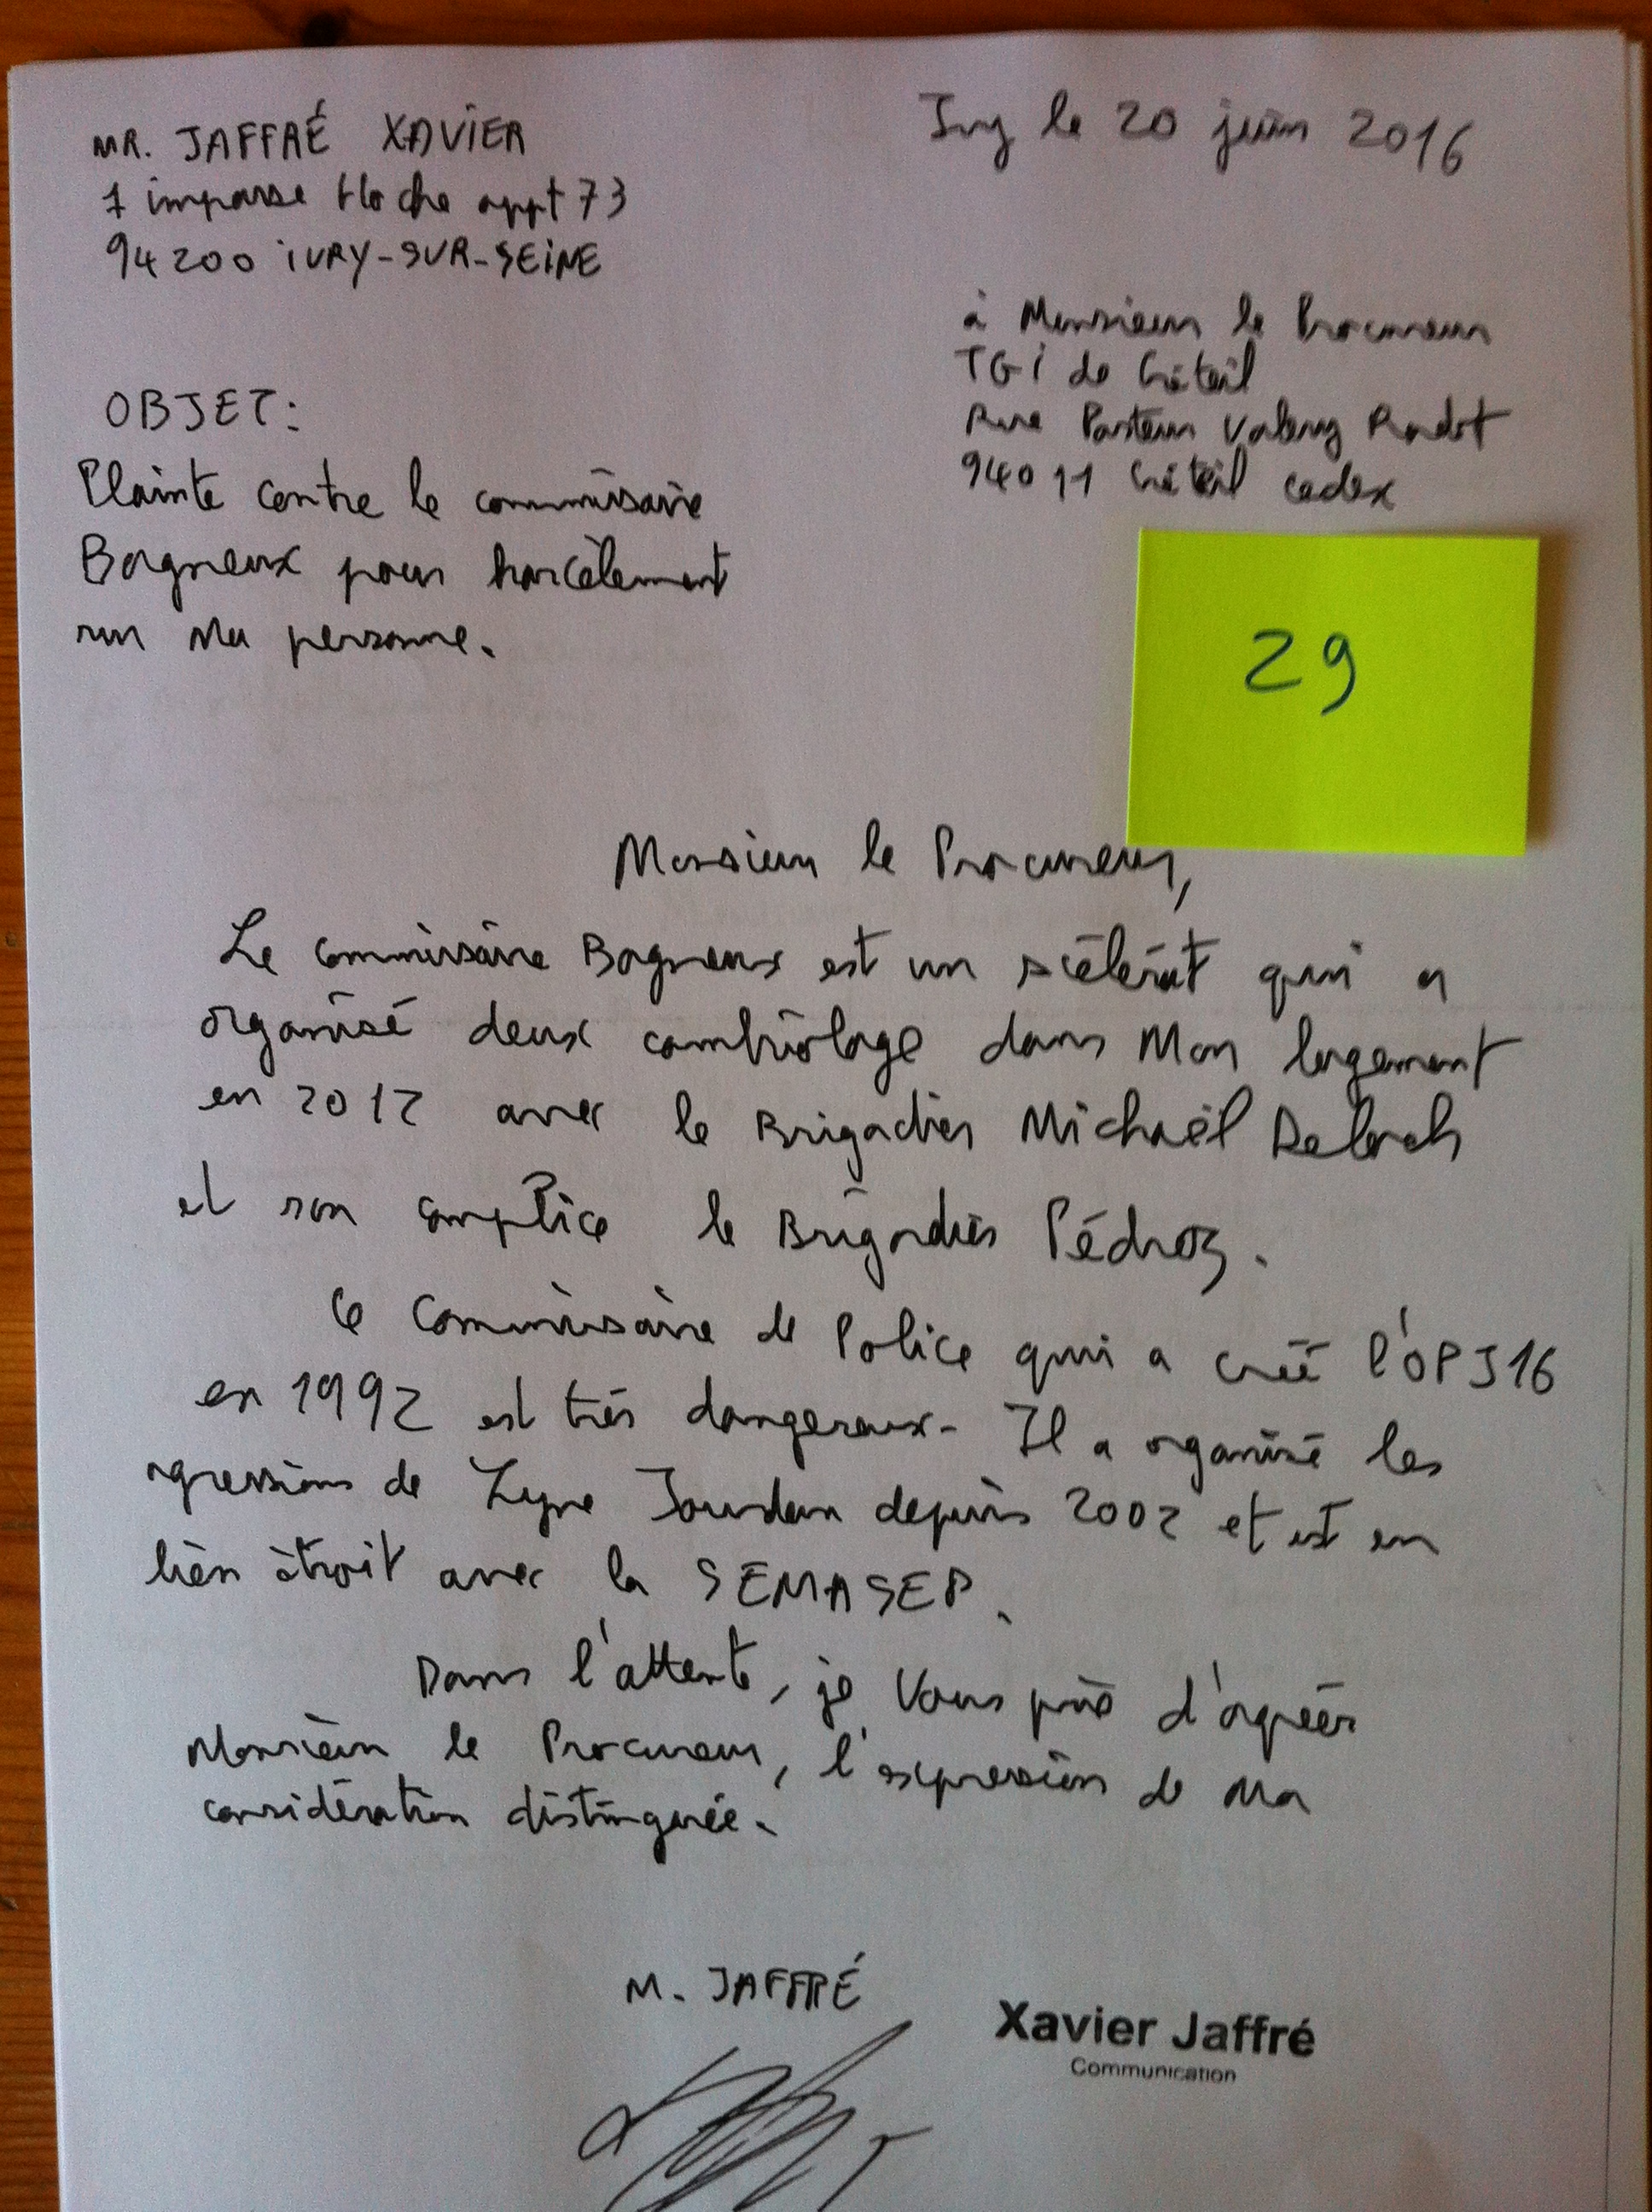 MR. JAFFRÉ XAVIER
1 impasse Hoche appt 73
94200 iVRY-SUR-SEiNE
Ivry le 20 juin 2016
à Monsieur le Procureur
TGI de Créteil
Rue Pasteur Valery Radot
94011 Créteil cedex
OBJET:
Plainte contre le commissaire
Bagneux pour harcèlement
sur ma personne.
29
Monsieur le Procureur,
Le commissaire Bagneux est un scélérat qui a
organisé deux cambriolage dans mon logement
en 2012 avec le Brigadier Michaël
et son complice le Brigadier Pédroz.
Ce Commissaire de Police qui a créé l'OPJ16
en 1992 est très dangereux. Il a organisé les
agressions de Lyne Jourdan depuis 2002 et est en
lien étroit avec la SEMASEP.
Dans l'attente, je vous prie d'agréer
Monsieur le Procureur, l'expression de ma
considération distinguée.
M. JAFFRÉ
Xavier Jaffré
Communication